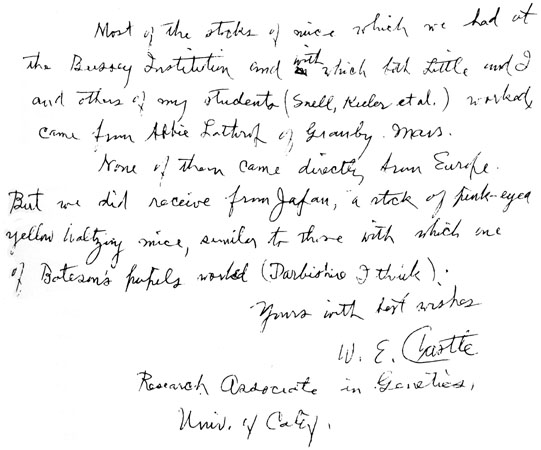 Most of the stocks of mice which we had at
the Bussey Institution and with which both Little and I
and others of my students (Snell, Keeler et al.) worked,
came from Abbie Lathrop of Granby. Mass.
None of them came directly from Europe.
But we did receive from Japan, a stock of pink-eyed
yellow waltzing mice, similar to those with which one
of Bateson's pupils worked (Darbishire I think).
Yours with best wishes
W. E. Castle
Research Associate in Genetics,
Univ. of Calif.